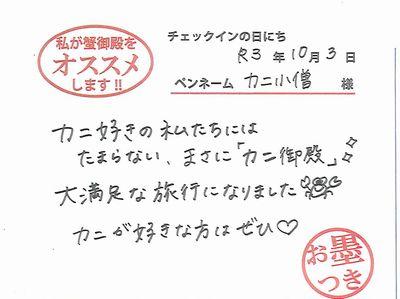 私が蟹御殿を
オススメ
します!!
チェックインの日にち
R3 年 10 月 3 日
ペンネーム カニ小僧 様
カニ好きの私たちには
たまらない、まさに「カニ御殿」
大満足な旅行になりました
カニが好きな方はぜひ♡
お墨
つき